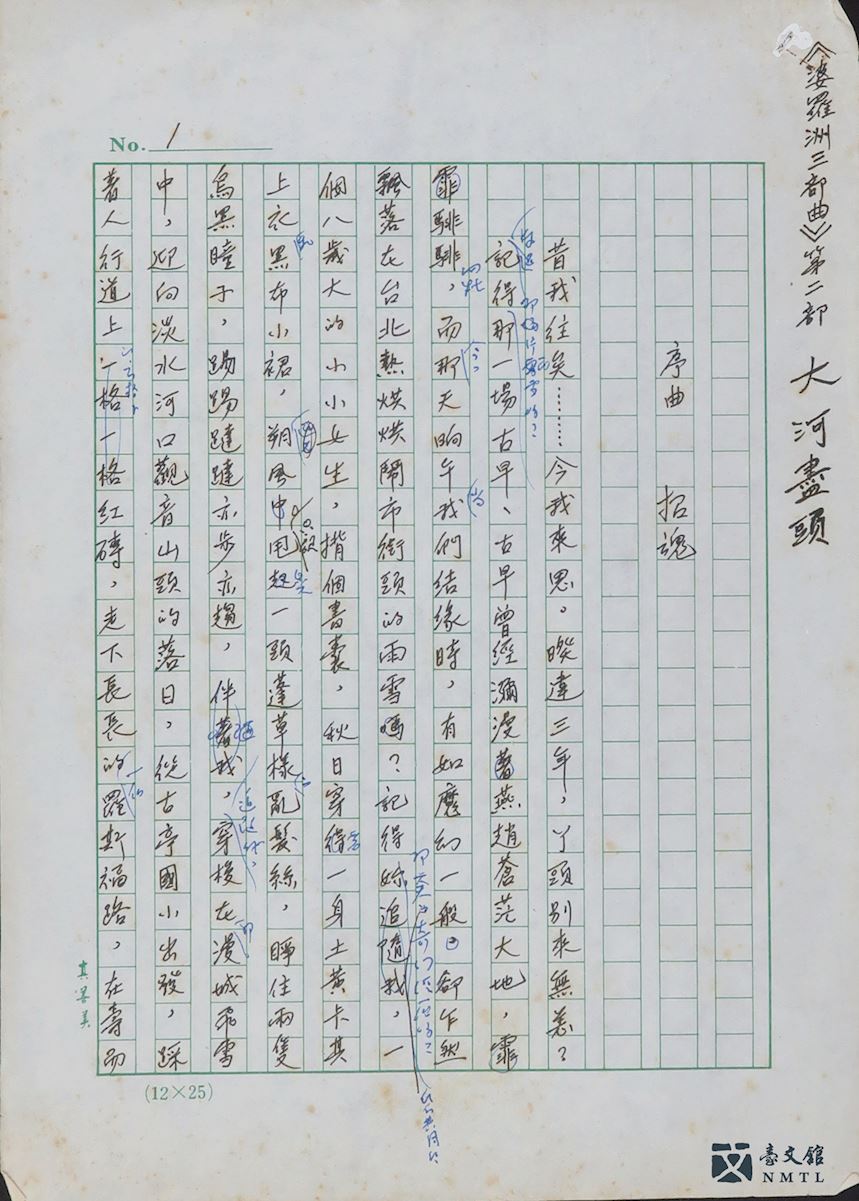 《婆羅洲三部曲》第二部 大河盡頭
No. 1
序曲 招魂
昔我往矣………今我來思。暌違三年,丫頭別來無恙?
記得那一場古早、古早曾經瀰漫著燕趙蒼茫大地,霏
霏騑騑,而那天晌午我們結緣時,有如魔幻一般卻乍然
飄落在台北熱烘烘鬧市街頭的雨雪嗎?記得妳追隨我,一
個八歲大的小小女生,揹個書囊,秋日穿得一身土黃卡其
上衣黑布小裙,朔風中甩起一頭蓬草樣亂髮絲,睜住兩隻
烏黑瞳子,踢踢躂躂亦步亦趨,伴著我,穿梭在漫城飛雪
中,迎向淡水河口觀音山頭的落日,從古亭國小出發,踩
著人行道上一格一格紅磚,走下長長的羅斯福路,在壽而
(12×25)
臺文館
NMTL